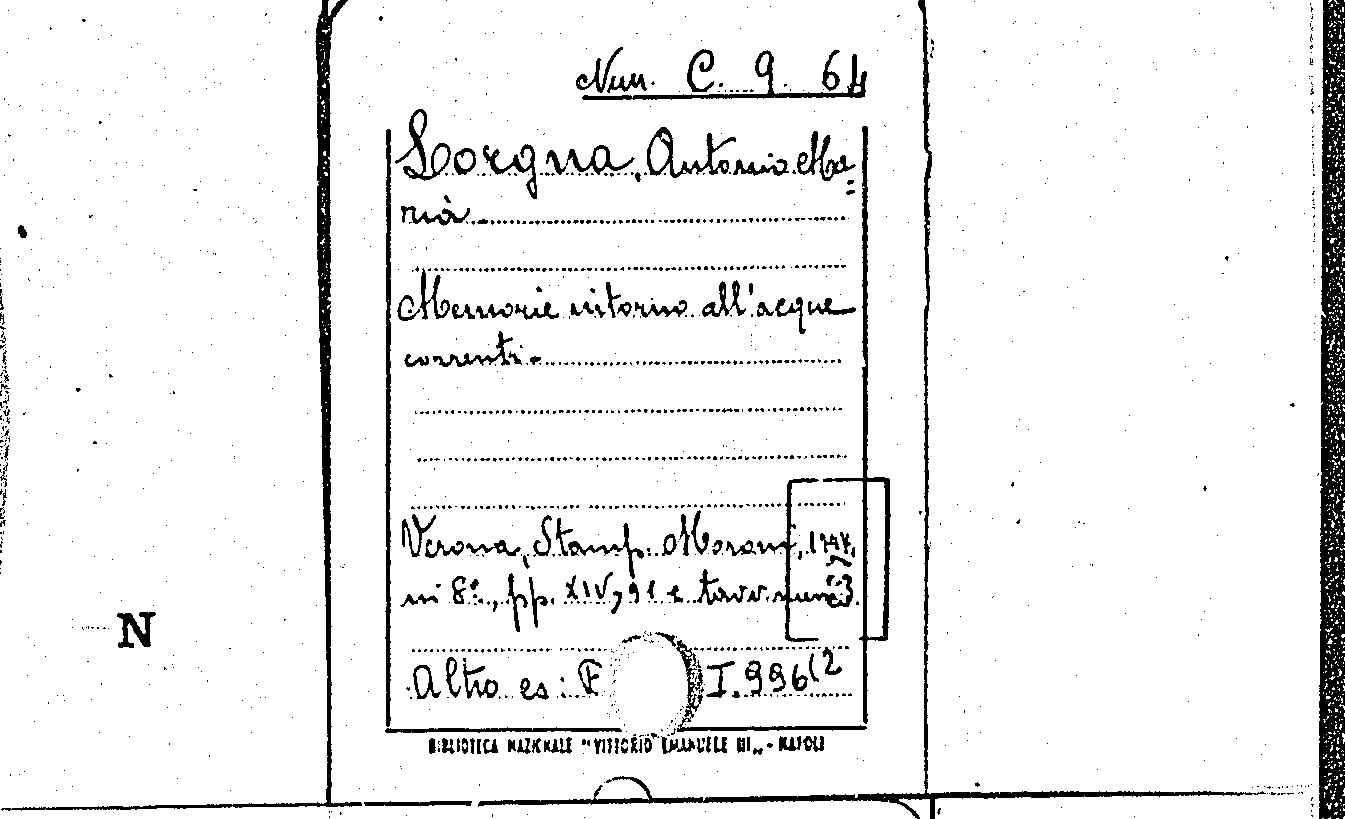 Num. C. 9. 64
Lorgna, Antonio Ma=
ria.
Memorie intorno all'acque
correnti.
Verona, Stamp. Moroni,
in 8º, pp. XIV, 91 e tavv.
N
Altro es: F I. 996(2
BIBLIOTECA NAZIONALE "VITTORIO EMANUELE III„ - NAPOLI